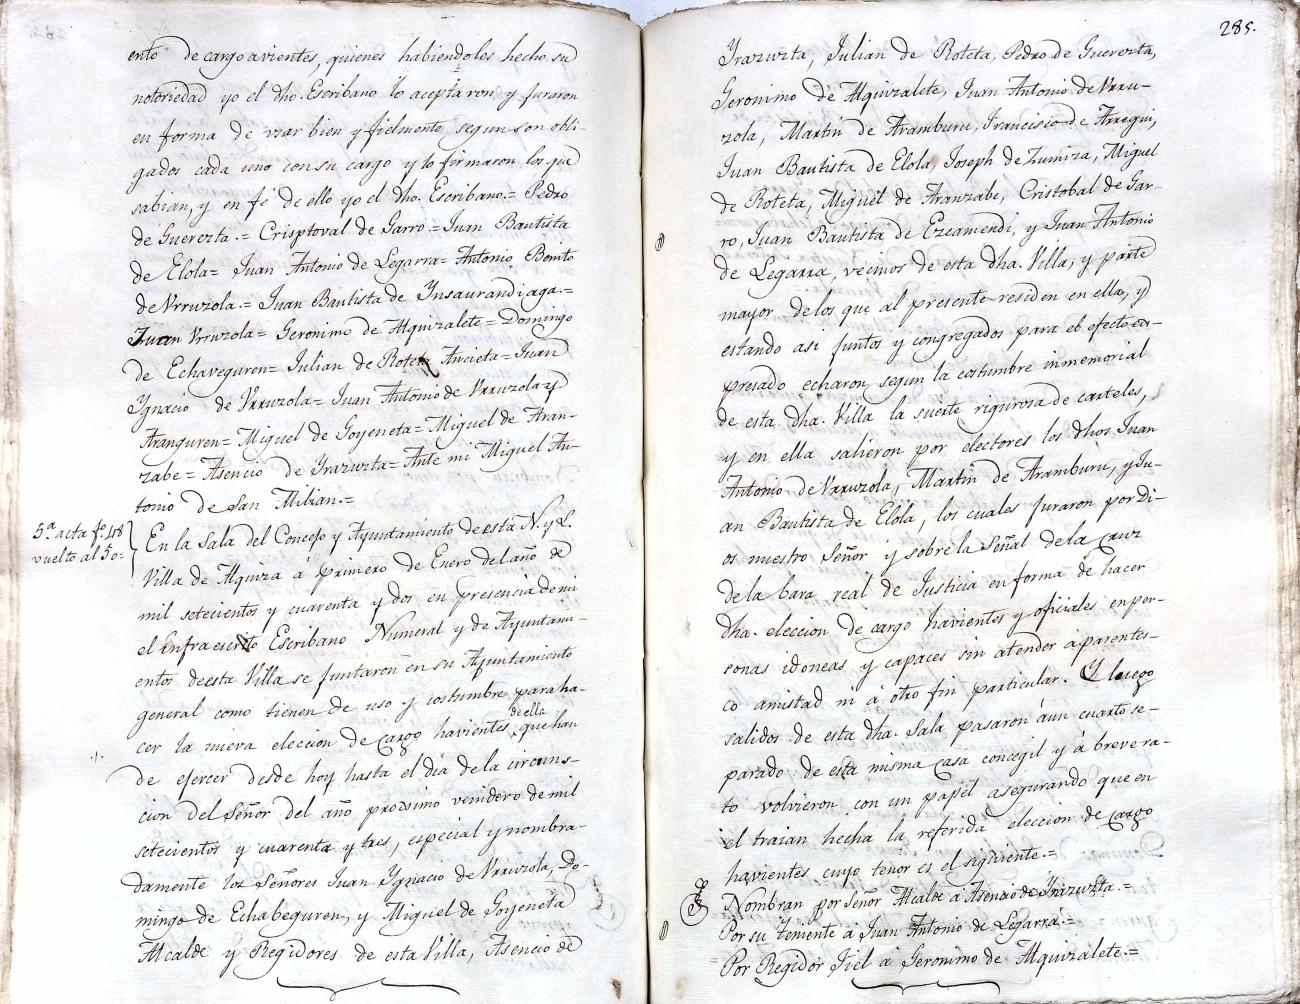 ento de cargo avientes, quienes habiendoles hecho su
notoriedad yo el dho. Escribano lo aceptaron y juraron
en forma de usar bien y fielmente segun son obli-
gados cada uno con su cargo y lo firmaron los que
sabian, y en fé de ello yo el dho. Escribano.= Pedro
de Guerezta.= Crisptoval de Garro.= Juan Bautista
de Elola= Juan Antonio de Legarra= Antonio Benito
de Vrruzola.= Juan Bautista de Ynsaurandiaga.=
Juan Vrruzola= Geronimo de Alquizalete= Domingo
de Echaveguren= Julian de Roteta Ancieta= Juan
Ygnacio de Vrruzola= Juan Antonio de Vrruzola y
Aranguren= Miguel de Goyeneta= Miguel de Aran-
zabe= Asencio de Yrazuzta= Ante mi Miguel An-
tonio de San Milian.=
5.ª acta fº. 48
vuelto al 50=
En la Sala del Concejo y Ayuntamiento de esta N. y L.
Villa de Alquiza á primero de Enero del año de
mil setecientos y cuarenta y dos en presencia de mi
el Enfraescrito Escribano Numeral y de Ayuntami-
entos de esta Villa se juntaron en su Ayuntamiento
general como tienen de uso y costumbre para ha-
cer la nueva eleccion de cargo havientes de ella que han
de ejercer desde hoy hasta el día de la circuns-
cion del Señor del año procsimo venidero de mil
setecientos y cuarenta y tres, especial y nombra-
damente los Señores Juan Ygnacio de Vrruzola, Do-
mingo de Echabeguren, y Miguel de Goyeneta
Alcalde y Regidores de esta Villa, Asencio de
285.
Yrazuzta, Julian de Roteta, Pedro de Guerezta,
Geronimo de Alquizalete, Juan Antonio de Vrru-
zola, Martin de Aramburu, Francisco de Arregui,
Juan Bautista de Elola, Joseph de Lumiza, Miguel
de Roteta, Miguel de Aranzabe, Cristobal de Gar-
ro, Juan Bautista de Ezcamendi, y Juan Antonio
de Legarra, vecinos de esta dha. Villa, y parte
mayor de los que al presente residen en ella, y
estando asi juntos y congregados para el efecto es-
presado echaron segun la costumbre inmemorial
de esta dha. Villa la suerte rigurosa de carteles,
y en ella salieron por electores los dhos Juan
Antonio de Vrruzola, Martin de Aramburu, y Ju-
an Bautista de Elola, los cuales juraron por Di-
os nuestro Señor y sobre la Señal de la Cruz
de la bara real de Justicia en forma de hacer
dha. eleccion de cargo havientes y oficiales en per-
sonas idoneas y capaces sin atender a parentes-
co amistad ni á otro fin particular. Y luego
salidos de esta dha. Sala pasaron á un cuarto se-
parado de esta misma casa concegil y á breve ra-
to volvieron con un papel asegurando que en
el traian hecha la referida eleccion de cargo
havientes cuyo tenor es el siguiente.=
Nombran por Señor Alcalde á Asencio de Yrazuzta.=
Por su Teniente á Juan Antonio de Legarra.=
Por Regidor Fiel a Geronimo de Alquizalete.=